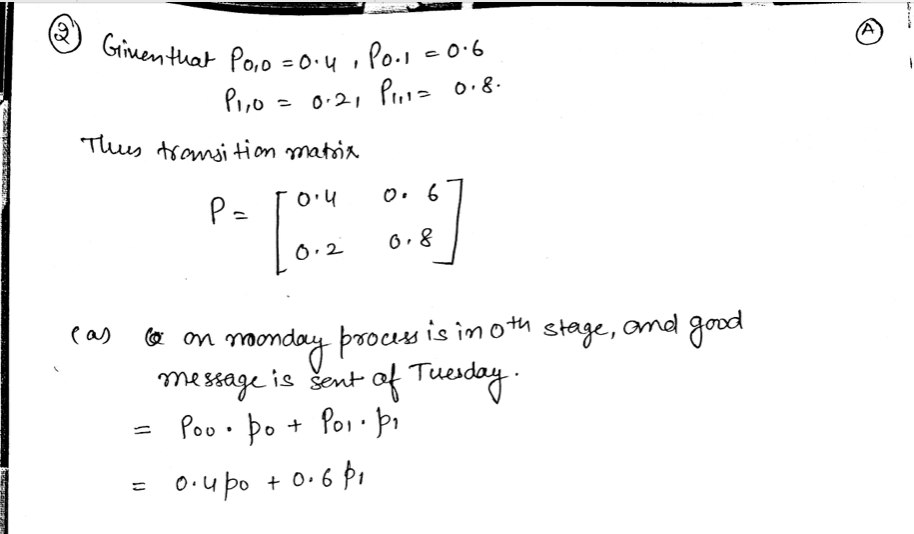 2
A
Given that P0,0 = 0.4 , P0.1 = 0.6
P1,0 = 0.2, P1,1 = 0.8.
Thus transition matrix
P = [ 0.4 0.6
0.2 0.8 ]
(a) on monday process is in 0th stage, and good
message is sent of Tuesday.
= P00 . p0 + P01 . p1
= 0.4 p0 + 0.6 p1